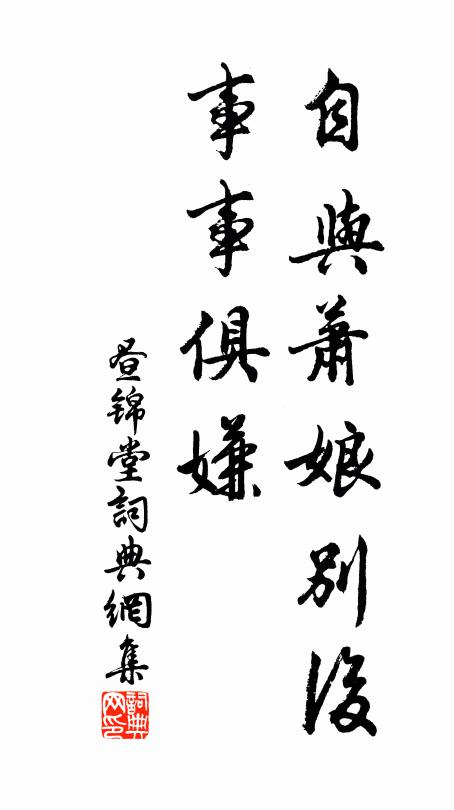 自與蕭娘別後
事事俱嫌
昼錦堂詞典網集
詞典
网印